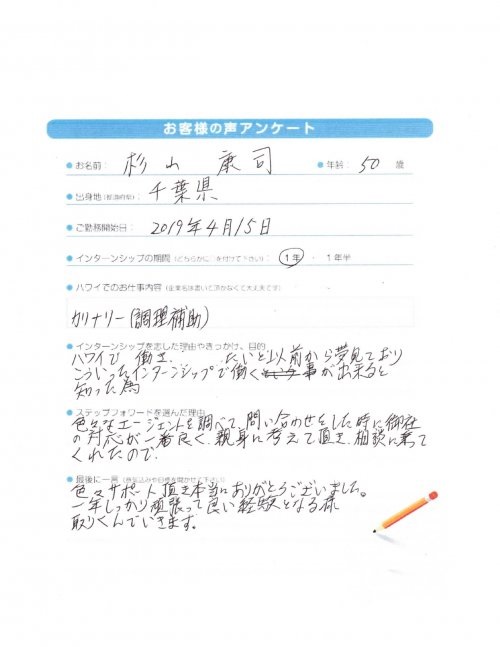 お客様の声アンケート
お名前: 杉山 康司 年齢: 50 歳
出身地(都道府県): 千葉県
ご勤務開始日: 2019年4月15日
インターンシップの期間(どちらかに○を付けて下さい): 1年 ・ 1年半
ハワイでのお仕事内容(企業名は書いて頂かなくて大丈夫です)
カリナリー(調理補助)
インターンシップを志した理由やきっかけ、目的
ハワイで 働き たいと以前から夢見ており
こういったインターンシップで働く事が出来ると
知った為
ステップフォワードを選んだ理由
色々なエージェントを調べて、問い合わせをした時に御社
の対応が一番良く、親身に考えて頂き、相談に乗って
くれたので
最後に一言
色々サポート頂き本当にありがとうございました。
一年しっかり頑張って良い経験となる様
取りくんでいきます。